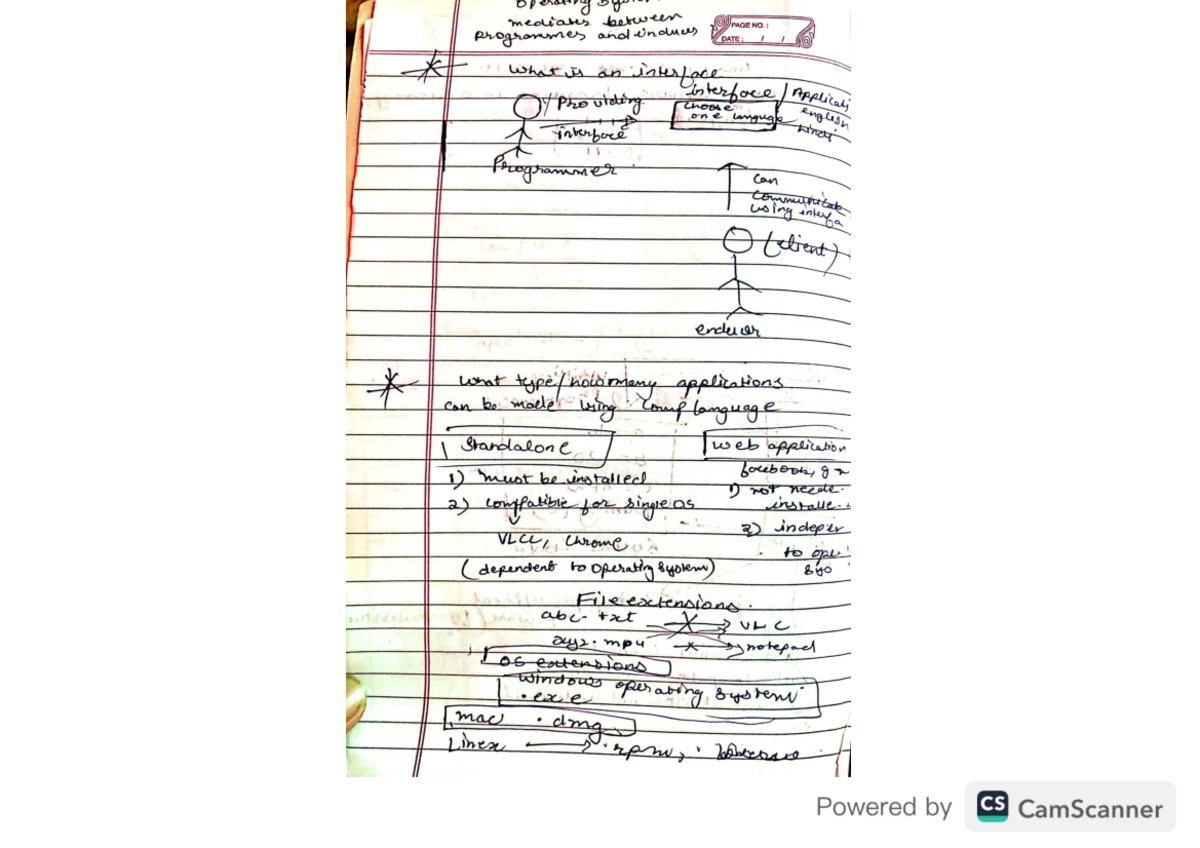 Operating System
mediates between
programmes and endusers
PAGE NO.:
DATE: / /
What is an interface
interface / Applicati
Providing
interface
choose
one language
english
hindi
Programmer
can
communicate
using interfa
(client)
enduser
What type/how many applications
can be made using comp language
Standalone
web application
facebook, g
1) must be installed
1) not neede
installe
2) compatible for single os
2) indepen
to ope
sys
VLC, Chrome
(dependent to operating system)
File extensions.
abc. txt VLC
xyz. mp4 notepad
OS extensions
windows operating system
.exe
mac .dmg
Linex .rpm,
Powered by CS CamScanner